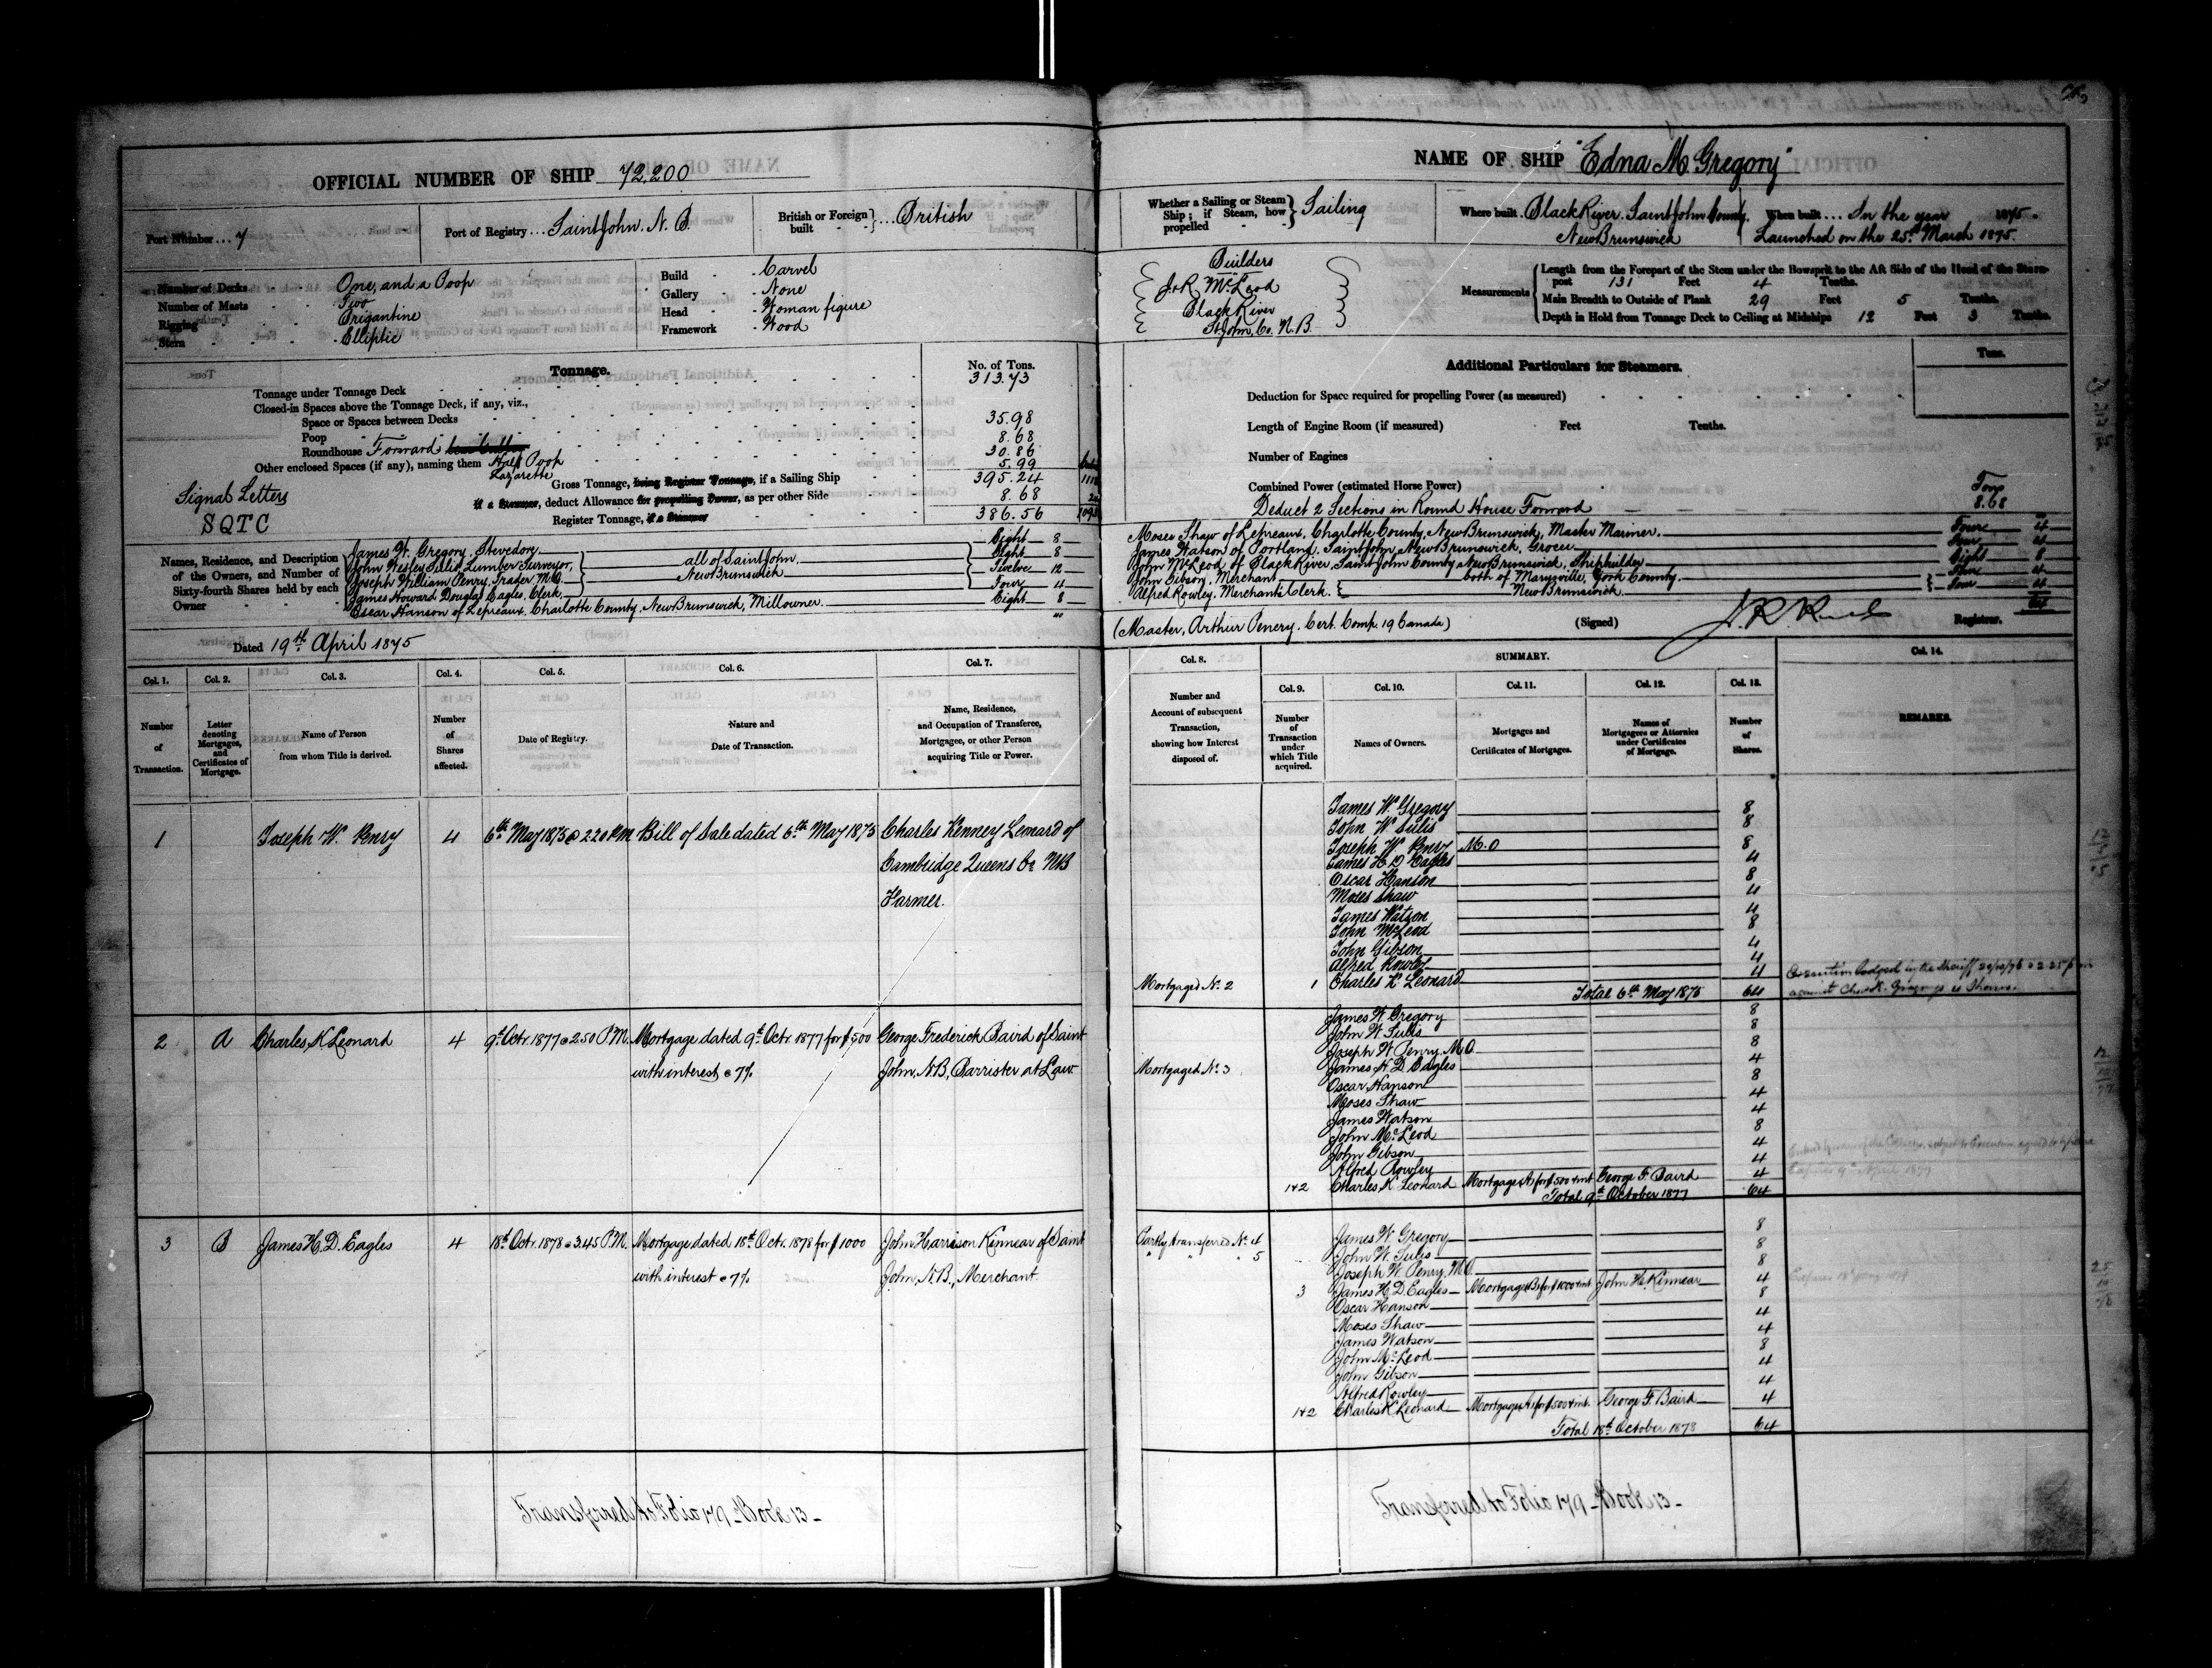 OFFICIAL NUMBER OF SHIP 72,200
Port Number ... 7
Port of Registry ... Saint John. N. B.
British or Foreign built } ... British
Number of Decks One, and a Poop
Number of Masts Two
Rigging Brigantine
Stern Elliptic
Build Carvel
Gallery None
Head Woman figure
Framework Wood
Tonnage.
No. of Tons.
Tonnage under Tonnage Deck 313.73
Closed-in Spaces above the Tonnage Deck, if any, viz.,
Space or Spaces between Decks
Poop 35.98
Roundhouse Forward 8.68
Other enclosed Spaces (if any), naming them Half Poop 30.86
Lazarette 5.99
Gross Tonnage, being Register Tonnage, if a Sailing Ship 395.24
if a Steamer, deduct Allowance for propelling Power, as per other Side 8.68
Register Tonnage, if a Steamer 386.56
Signal Letters
SQTC
Names, Residence, and Description of the Owners, and Number of Sixty-fourth Shares held by each Owner
James W. Gregory, Stevedore Eight 8
John Wesley Sulis, Lumber Surveyor, all of Saint John, Eight 8
Joseph William Penry, Trader M.O. New Brunswick Twelve 12
James Howard Douglas Eagles, Clerk, Four 4
Oscar Hanson of Lepreaux, Charlotte County, New Brunswick, Millowner. Eight 8
Dated 19th April 1875
NAME OF SHIP "Edna M Gregory"
Whether a Sailing or Steam Ship; if Steam, how propelled } Sailing
Where built Black River. Saint John County. New Brunswick
When built ... In the year 1875.
Launched on the 25th March 1875.
Builders
J & R McLeod
Black River
St John Co. N. B
Measurements
Length from the Forepart of the Stem under the Bowsprit to the Aft Side of the Head of the Stern-
post 131 Feet 4 Tenths.
Main Breadth to Outside of Plank 29 Feet 5 Tenths.
Depth in Hold from Tonnage Deck to Ceiling at Midships 12 Feet 3 Tenths.
Additional Particulars for Steamers.
Tons.
Deduction for Space required for propelling Power (as measured)
Length of Engine Room (if measured) Feet Tenths.
Number of Engines
Combined Power (estimated Horse Power)
Deduct 2 Sections in Round House Forward Tons 8.68
Moses Shaw of Lepreaux, Charlotte County, New Brunswick, Master Mariner. Four 4
James Watson of Portland, Saint John, New Brunswick, Grocer Four 4
John McLeod of Black River, Saint John County New Brunswick, Shipbuilder Eight 8
John Gibson, Merchant both of Marysville, York County. Four 4
Alfred Rowley, Merchants Clerk. New Brunswick. Four 4
64
(Master, Arthur Penery. Cert. Comp. 19 Canada)
(Signed) Registrar.
Col. 1. Col. 2. Col. 3. Col. 4. Col. 5. Col. 6. Col. 7.
Number of Transaction.
Letter denoting Mortgages, and Certificates of Mortgage.
Name of Person from whom Title is derived.
Number of Shares affected.
Date of Registry.
Nature and Date of Transaction.
Name, Residence, and Occupation of Transferee, Mortgagee, or other Person acquiring Title or Power.
Col. 8. SUMMARY. Col. 14.
Col. 9. Col. 10. Col. 11. Col. 12. Col. 13.
Number and Account of subsequent Transaction, showing how Interest disposed of.
Number of Transaction under which Title acquired.
Names of Owners.
Mortgages and Certificates of Mortgages.
Names of Mortgagees or Attornies under Certificates of Mortgage.
Number of Shares.
REMARKS.
1 Joseph W. Penry 4 6th May 1875 @ 2.20 P.M Bill of Sale dated 6th May 1875 Charles Kenney Leonard of
Cambridge Queens Co NB
Farmer.
James W. Gregory 8
John W Sulis 8
Joseph W Penry M.O 8
James H D Eagles 4
Oscar Hanson 8
Moses Shaw 4
James Watson 4
John McLeod 8
John Gibson 4
Alfred Rowley 4
Mortgaged No. 2 1 Charles K Leonard 4
Total 6th May 1875 64
2 A Charles K Leonard 4 9th Octr. 1877 @ 2.50 P.M. Mortgage dated 9th Octr. 1877 for $500 George Frederick Baird of Saint
with interest @ 7% John, N.B., Barrister at Law
James W. Gregory 8
John W. Sulis 8
Joseph W. Penry M.O. 8
Mortgaged No. 3 James H. D. Eagles 4
Oscar Hanson 8
Moses Shaw 4
James Watson 4
John McLeod 8
John Gibson 4
Alfred Rowley 4
1+2 Charles K Leonard Mortgage A for $500 + int George F. Baird 4
Total 9th October 1877 64
3 B James H. D. Eagles 4 18th Octr. 1878 @ 3.45 P.M. Mortgage dated 18th Octr. 1878 for $1000 John Harrison Kinnear of Saint
with interest @ 7% John, N.B., Merchant.
Partly transferred No. 4
" " " 5
James W. Gregory 8
John W. Sulis 8
Joseph W. Penry, M.O. 8
3 James H. D. Eagles Mortgage B for $1000 + int. John H. Kinnear 4
Oscar Hanson 8
Moses Shaw 4
James Watson 4
John McLeod 8
John Gibson 4
Alfred Rowley 4
1+2 Charles K Leonard Mortgage A for $500 + int. George F. Baird 4
Total 18th October 1878 64
Transferred to Folio 179 - Book 13 -
Transferred to Folio 179 - Book 13 -